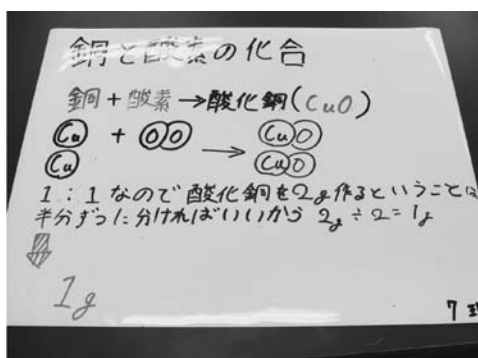 銅と酸素の化合
銅+酸素→酸化銅(CuO)
Cu + OO → CuO
Cu CuO
1:1なので酸化銅を2g作るということは
半分ずつに分ければいいから 2g÷2=1g
1g
7